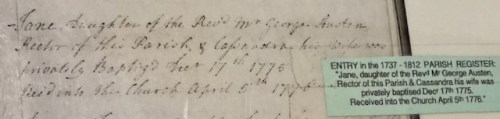 Jane, Daughter of the Revd Mr George Austen
Rector of this Parish, & Cassandra his Wife was
privately Baptiz'd Decr 17th 1775
Rec'd into the Church April 5th 1776
ENTRY in the 1737 - 1812 PARISH REGISTER:
"Jane, daughter of the Revd Mr George Austen,
Rector of this Parish & Cassandra his wife was
privately baptised Dec 17th 1775.
Received into the Church April 5th 1776."